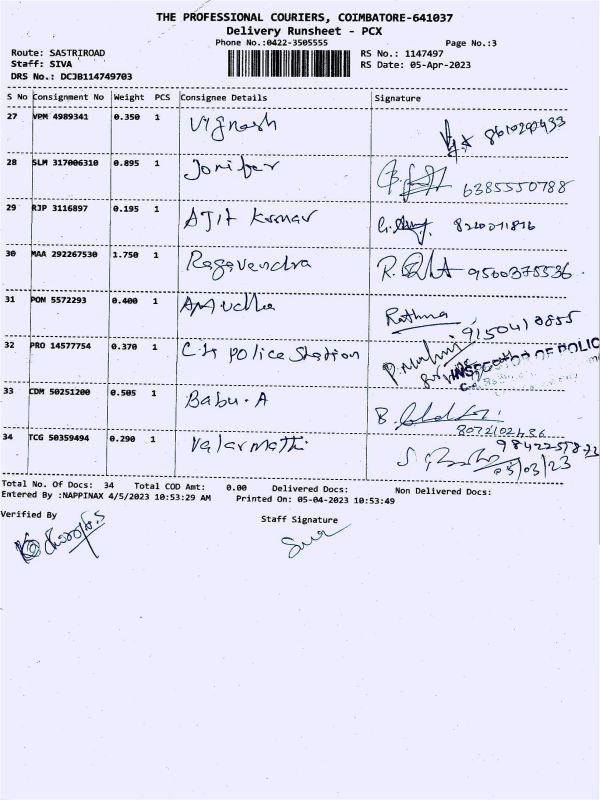 THE PROFESSIONAL COURIERS, COIMBATORE-641037
Delivery Runsheet - PCX
Phone No.:0422-3505555 Page No.:3
Route: SASTRIROAD RS No.: 1147497
Staff: SIVA RS Date: 05-Apr-2023
DRS No.: DCJB114749703
S No Consignment No Weight PCS Consignee Details Signature
27 VPM 4989341 0.350 1 Vignesh
28 SLM 317006310 0.895 1 Jenifer 6385550788
29 RJP 3116897 0.195 1 Ajit Kumar
30 MAA 292267530 1.750 1 Ragavendra 9500375536
31 PON 5572293 0.400 1 Amudha Rathna 9150410855
32 PRO 14577754 0.370 1 C4 police Station INSPECTOR OF POLIC
33 CDM 50251200 0.505 1 Babu.A B.
34 TCG 50359494 0.290 1 Valarmathi
Total No. Of Docs: 34 Total COD Amt: 0.00 Delivered Docs: Non Delivered Docs:
Entered By :NAPPINAX 4/5/2023 10:53:29 AM Printed On: 05-04-2023 10:53:49
Verified By Staff Signature